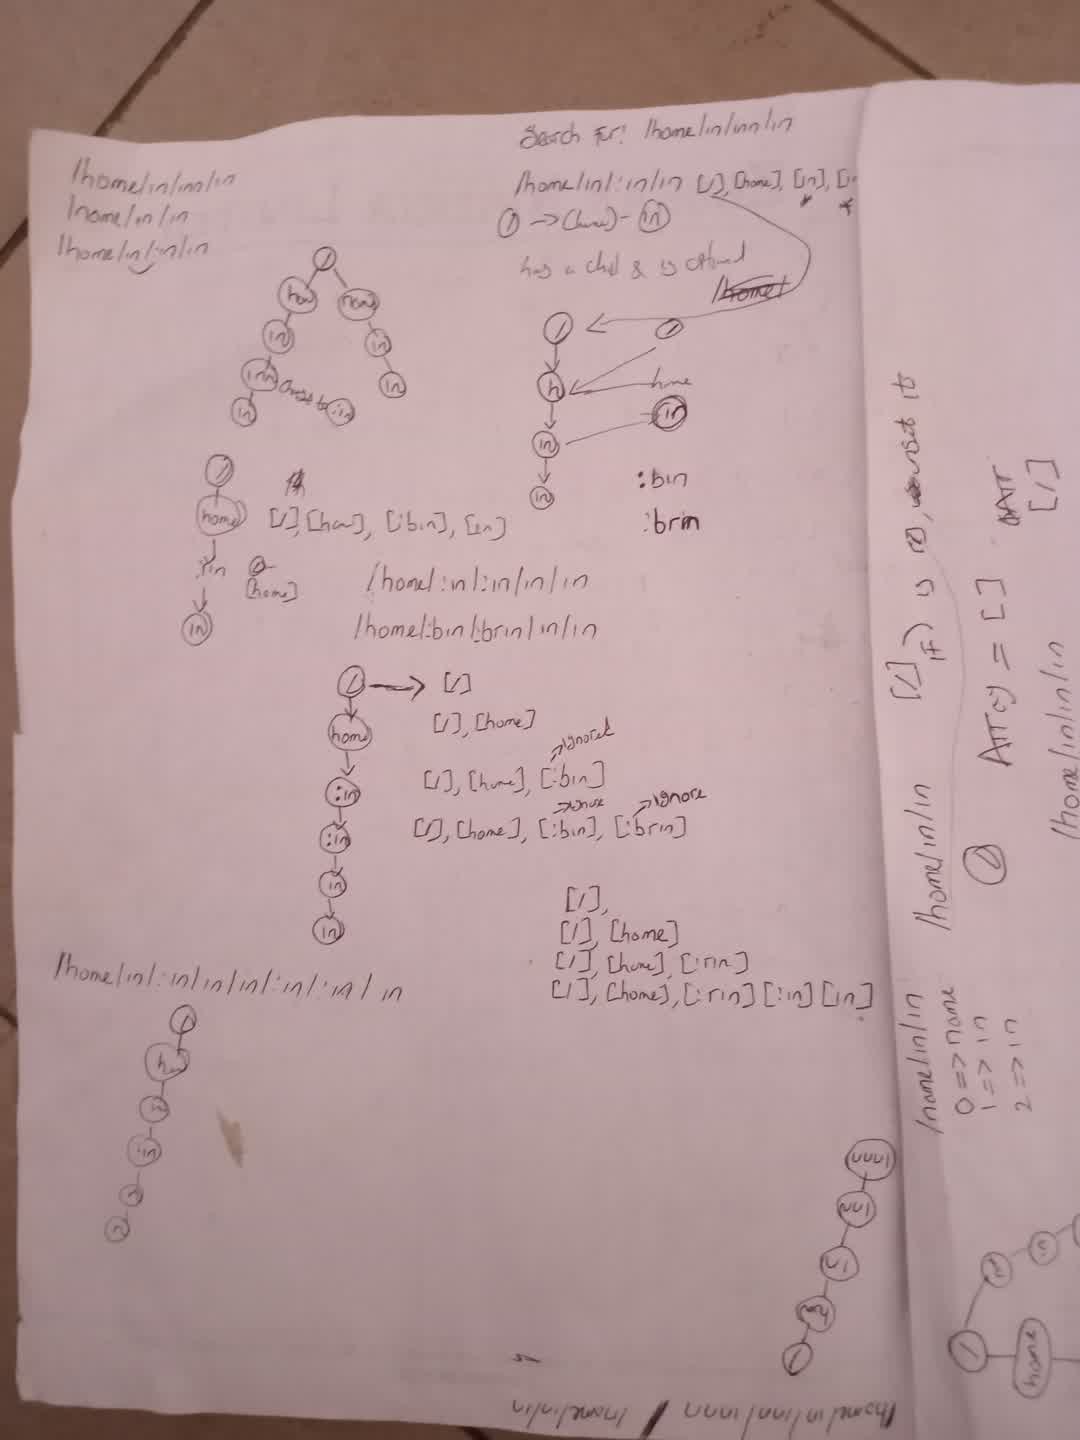 /home/in/inn/in
/home/in/in
/home/in/:in/in
Search For: /home/in/inn/in
/home/in/:in/in [/], [home], [in],
/ → (home) - in
has a child &
/home/
/
in
in
inn
:in
in
in
in
/
/
h
home
in
in
in
:bin
:brin
/
home
[/], [home], [:bin], [in]
:in
[home]
in
/home/:in/:in/in/in
/home/:bin/:brin/in/in
/ → [/]
home
[/], [home]
→ ignored
:in
[/], [home], [:bin]
→ ignore → ignore
:in
[/], [home], [:bin], [:brin]
in
in
[/],
[/], [home]
[/], [home], [:rin]
[/], [home], [:rin] [:in] [in]
/home/in/:in/in/in/:in/:in/in
/
h
:in
/home/in/inn/innn / /home/in/in
innn
inn
in
/
[/] IF / is, unset it
/home/in/in
/ ATT(/) = [ ] ATT [/]
/home/in/in/in
/home/in/in
0 => home
1 => in
2 => in
/
home
in
in